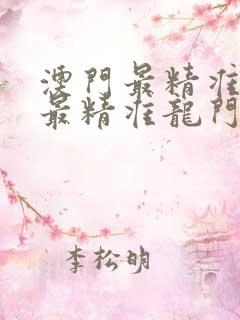 澳門最精准
最精准龍門
李松明